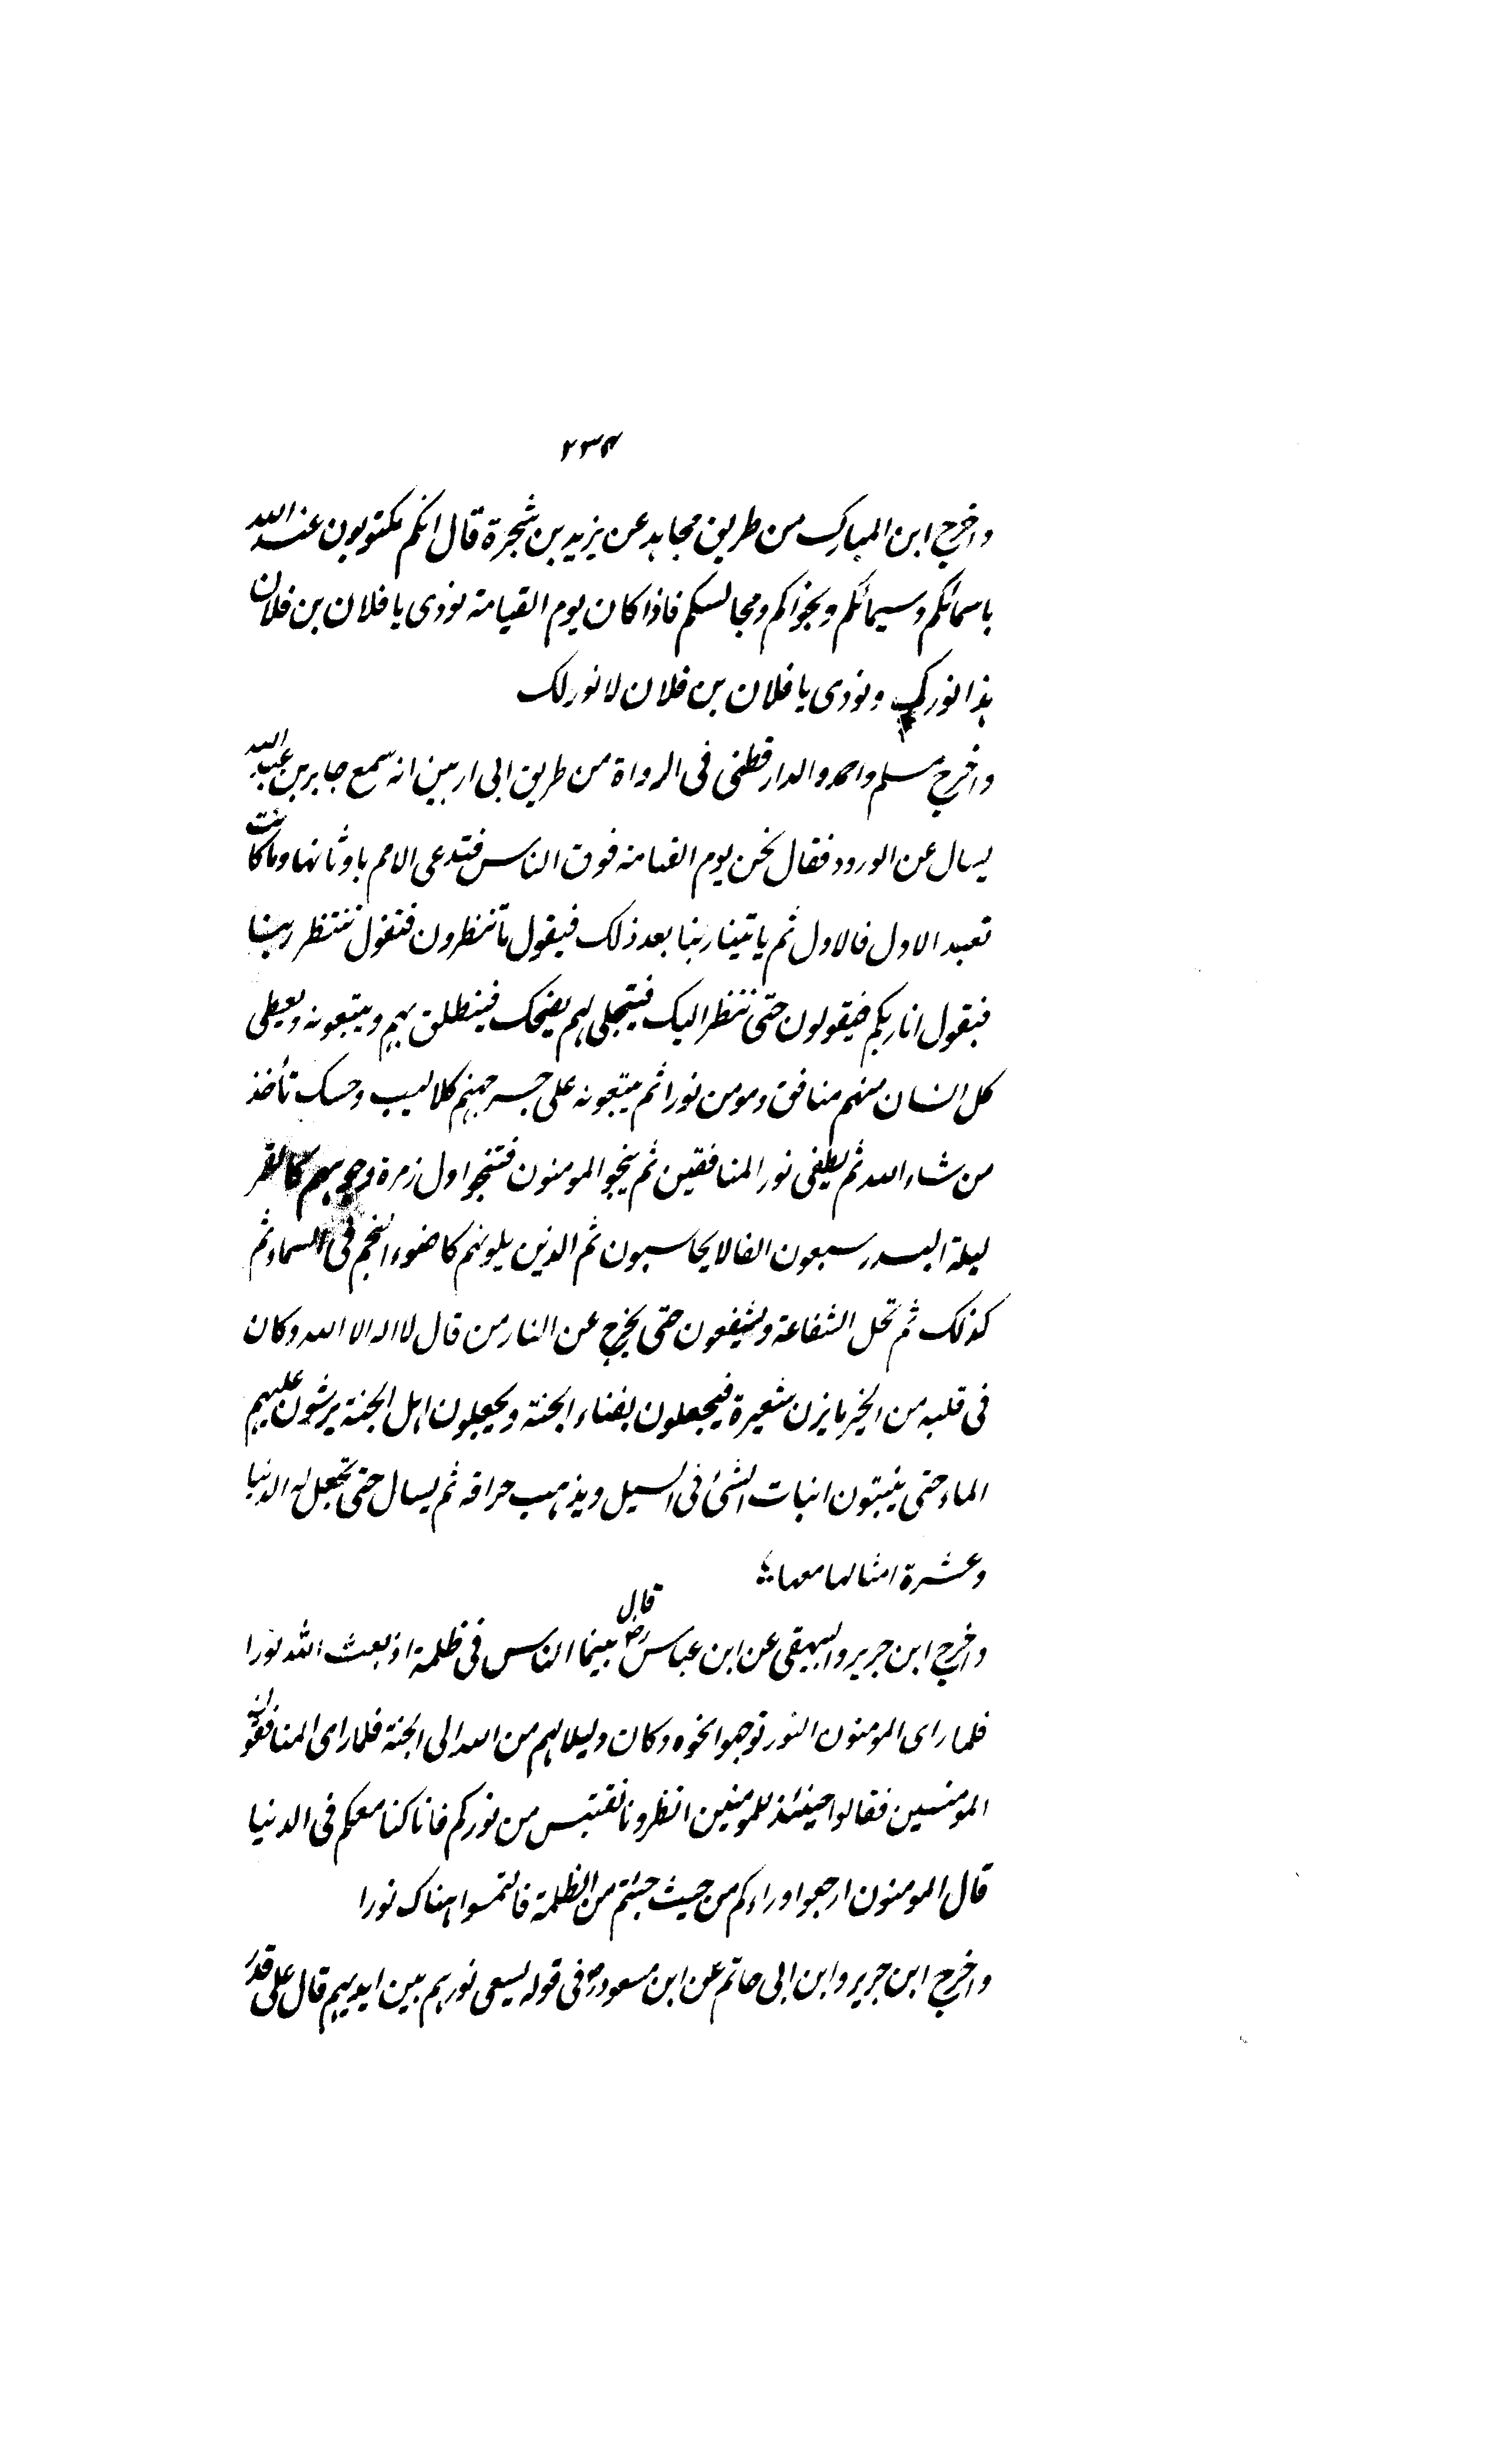 ۲۳۴
واخرج ابن المبارک من طریق مجاہد عن یزید بن شجرة قال انکم مکتوبون عند اللہ
باسمائکم وسیمائکم ونجواکم ومجالسکم فاذا کان یوم القیامة نودی یا فلان بن فلان
ہذا نورک ونودی یا فلان بن فلان لا نور لک
واخرج مسلم واحمد والدارقطنی فی الرواة من طریق ابی الزبیر انہ سمع جابر بن عبد اللہ
یسال عن الورود فقال نحن یوم القیامة فوق الناس فتدعی الامم باوثانہا وما کانت
تعبد الاول فالاول ثم یاتینا ربنا بعد ذلک فیقول ما تنظرون فتقول ننتظر ربنا
فیقول انا ربکم فیقولون حتی ننظر الیک فیتجلی لہم یضحک فینطلق بہم ویتبعونہ ویعطی
کل انسان منہم منافق ومومن نورا ثم یتبعونہ علی جسر جہنم کلالیب وحسک تأخذ
من شاء اللہ ثم یطفی نور المنافقین ثم ینجو المومنون فتنجو اول زمرة وجوہہم کالقمر
لیلة البدر سبعون الفا لا یحاسبون ثم الذین یلونہم کاضوء النجم فی السماء ثم
کذلک ثم تحل الشفاعة ویشفعون حتی یخرج عن النار من قال لا الہ الا اللہ وکان
فی قلبہ من الخیر ما یزن شعیرة فیجعلون بفناء الجنة ویجعلون اہل الجنة یرشون علیہم
الماء حتی ینبتون انبات الشئ فی السیل ویذہب حراقہ ثم یسال حتی تجعل لہ الدنیا
وعشرة امثالہا معہا
واخرج ابن جریر والبیہقی عن ابن عباس رض قال بینما الناس فی ظلمة اذ بعث اللہ نورا
فلما رای المومنون النور توجہوا نحوہ وکان دلیلا لہم من اللہ الی الجنة فلما رای المنافقون
المومنین فقالوا حینئذ للمومنین انظرونا نقتبس من نورکم فانا کنا معکم فی الدنیا
قال المومنون ارجعوا وراءکم من حیث جئتم من الظلمة فالتمسوا ہناک نورا
واخرج ابن جریر وابن ابی حاتم عن ابن مسعود رض فی قولہ یسعی نورہم بین ایدیہم قال علی قدر